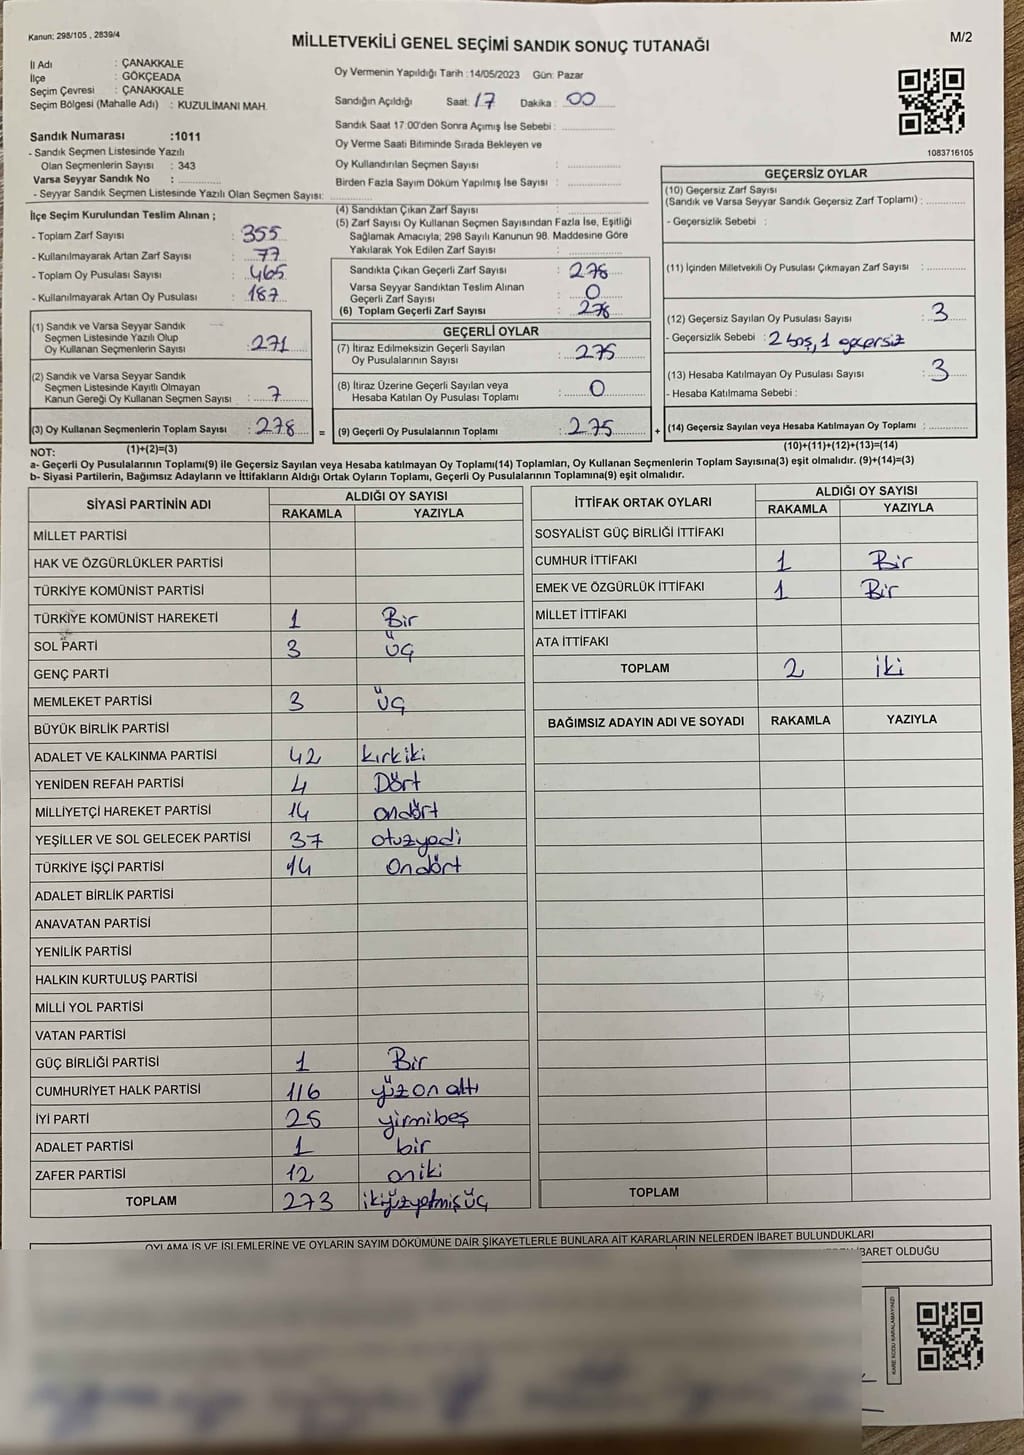 Kanun: 298/105 , 2839/4
MİLLETVEKİLİ GENEL SEÇİMİ SANDIK SONUÇ TUTANAĞI
M/2
İl Adı : ÇANAKKALE
İlçe : GÖKÇEADA
Seçim Çevresi : ÇANAKKALE
Seçim Bölgesi (Mahalle Adı) : KUZULİMANI MAH.
Sandık Numarası :1011
- Sandık Seçmen Listesinde Yazılı
Olan Seçmenlerin Sayısı : 343
Varsa Seyyar Sandık No :
- Seyyar Sandık Seçmen Listesinde Yazılı Olan Seçmen Sayısı:
Oy Vermenin Yapıldığı Tarih :14/05/2023 Gün: Pazar
Sandığın Açıldığı Saat: 17 Dakika : 00
Sandık Saat 17:00'den Sonra Açımış İse Sebebi :
Oy Verme Saati Bitiminde Sırada Bekleyen ve
Oy Kullandırılan Seçmen Sayısı :
Birden Fazla Sayım Döküm Yapılmış İse Sayısı :
1083716105
İlçe Seçim Kurulundan Teslim Alınan ;
- Toplam Zarf Sayısı : 355
- Kullanılmayarak Artan Zarf Sayısı : 77
- Toplam Oy Pusulası Sayısı : 465
- Kullanılmayarak Artan Oy Pusulası : 187
(1) Sandık ve Varsa Seyyar Sandık
Seçmen Listesinde Yazılı Olup
Oy Kullanan Seçmenlerin Sayısı : 271
(2) Sandık ve Varsa Seyyar Sandık
Seçmen Listesinde Kayıtlı Olmayan
Kanun Gereği Oy Kullanan Seçmen Sayısı : 7
(3) Oy Kullanan Seçmenlerin Toplam Sayısı : 278 =
(1)+(2)=(3)
(4) Sandıktan Çıkan Zarf Sayısı :
(5) Zarf Sayısı Oy Kullanan Seçmen Sayısından Fazla İse, Eşitliği
Sağlamak Amacıyla; 298 Sayılı Kanunun 98. Maddesine Göre
Yakılarak Yok Edilen Zarf Sayısı :
Sandıkta Çıkan Geçerli Zarf Sayısı : 278
Varsa Seyyar Sandıktan Teslim Alınan
Geçerli Zarf Sayısı : 0
(6) Toplam Geçerli Zarf Sayısı : 278
GEÇERLİ OYLAR
(7) İtiraz Edilmeksizin Geçerli Sayılan
Oy Pusulalarının Sayısı : 275
(8) İtiraz Üzerine Geçerli Sayılan veya
Hesaba Katılan Oy Pusulası Toplamı : 0
(9) Geçerli Oy Pusulalarının Toplamı : 275 +
GEÇERSİZ OYLAR
(10) Geçersiz Zarf Sayısı
(Sandık ve Varsa Seyyar Sandık Geçersiz Zarf Toplamı) :
- Geçersizlik Sebebi :
(11) İçinden Milletvekili Oy Pusulası Çıkmayan Zarf Sayısı :
(12) Geçersiz Sayılan Oy Pusulası Sayısı : 3
- Geçersizlik Sebebi : 2 boş, 1 geçersiz
(13) Hesaba Katılmayan Oy Pusulası Sayısı : 3
- Hesaba Katılmama Sebebi :
(14) Geçersiz Sayılan veya Hesaba Katılmayan Oy Toplamı :
(10)+(11)+(12)+(13)=(14)
NOT:
a- Geçerli Oy Pusulalarının Toplamı(9) ile Geçersiz Sayılan veya Hesaba katılmayan Oy Toplamı(14) Toplamları, Oy Kullanan Seçmenlerin Toplam Sayısına(3) eşit olmalıdır. (9)+(14)=(3)
b- Siyasi Partilerin, Bağımsız Adayların ve İttifakların Aldığı Ortak Oyların Toplamı, Geçerli Oy Pusulalarının Toplamına(9) eşit olmalıdır.
SİYASİ PARTİNİN ADI ALDIĞI OY SAYISI
RAKAMLA YAZIYLA
MİLLET PARTİSİ
HAK VE ÖZGÜRLÜKLER PARTİSİ
TÜRKİYE KOMÜNİST PARTİSİ
TÜRKİYE KOMÜNİST HAREKETİ 1 Bir
SOL PARTİ 3 üç
GENÇ PARTİ
MEMLEKET PARTİSİ 3 üç
BÜYÜK BİRLİK PARTİSİ
ADALET VE KALKINMA PARTİSİ 42 kırkiki
YENİDEN REFAH PARTİSİ 4 Dört
MİLLİYETÇİ HAREKET PARTİSİ 14 ondört
YEŞİLLER VE SOL GELECEK PARTİSİ 37 otuzyedi
TÜRKİYE İŞÇİ PARTİSİ 14 Ondört
ADALET BİRLİK PARTİSİ
ANAVATAN PARTİSİ
YENİLİK PARTİSİ
HALKIN KURTULUŞ PARTİSİ
MİLLİ YOL PARTİSİ
VATAN PARTİSİ
GÜÇ BİRLİĞİ PARTİSİ 1 Bir
CUMHURİYET HALK PARTİSİ 116 yüz on altı
İYİ PARTİ 25 yirmibeş
ADALET PARTİSİ 1 bir
ZAFER PARTİSİ 12 oniki
TOPLAM 273 ikiyüzyetmişüç
İTTİFAK ORTAK OYLARI ALDIĞI OY SAYISI
RAKAMLA YAZIYLA
SOSYALİST GÜÇ BİRLİĞİ İTTİFAKI
CUMHUR İTTİFAKI 1 Bir
EMEK VE ÖZGÜRLÜK İTTİFAKI 1 Bir
MİLLET İTTİFAKI
ATA İTTİFAKI
TOPLAM 2 iki
BAĞIMSIZ ADAYIN ADI VE SOYADI RAKAMLA YAZIYLA
TOPLAM
OYLAMA İŞ VE İŞLEMLERİNE VE OYLARIN SAYIM DÖKÜMÜNE DAİR ŞİKAYETLERLE BUNLARA AİT KARARLARIN NELERDEN İBARET BULUNDUKLARI
BARET OLDUĞU
KARE KODU KARALAMAYINIZ!